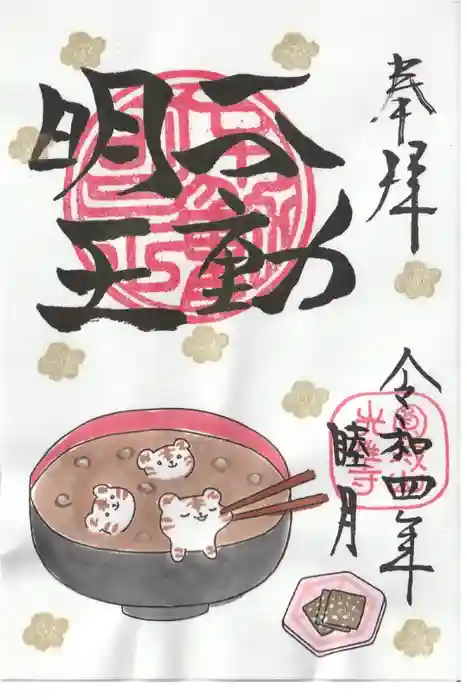 奉拝
不動
明王
令和四年
睦月